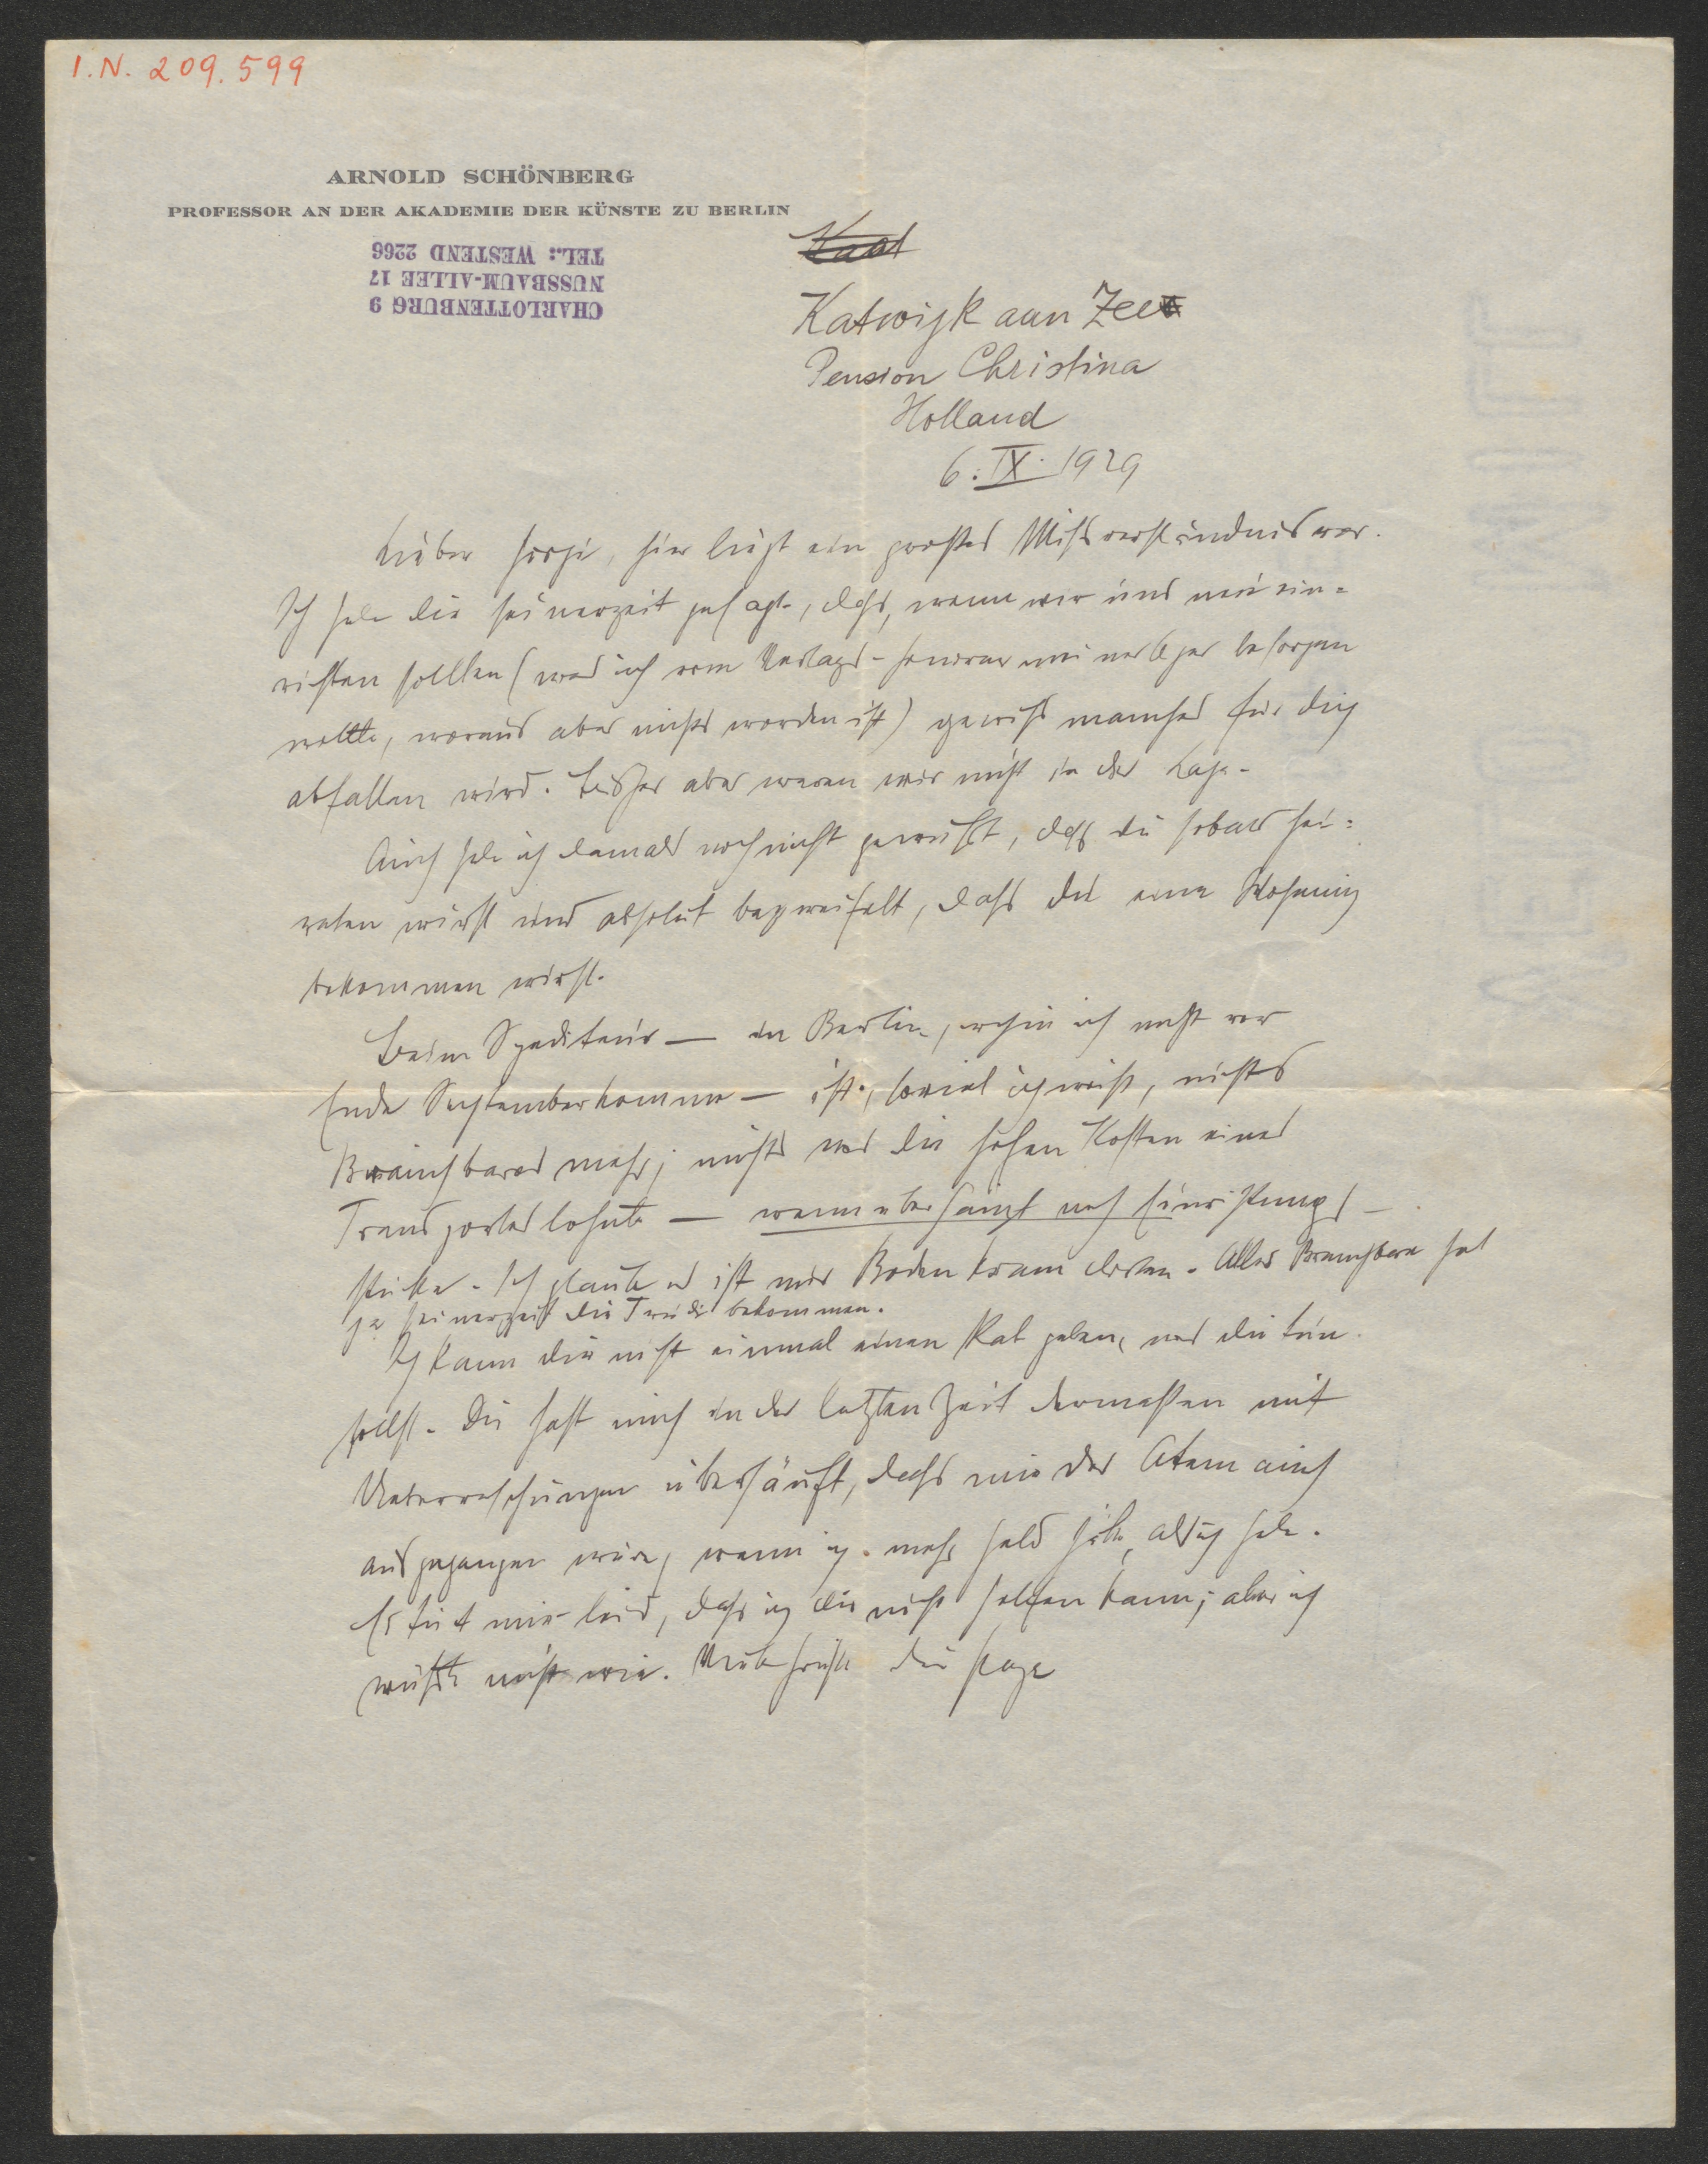 I.N. 209.599
ARNOLD SCHÖNBERG
PROFESSOR AN DER AKADEMIE DER KÜNSTE ZU BERLIN
CHARLOTTENBURG 9
NUSSBAUM-ALLEE 17
TEL.: WESTEND 2266
Katwijk aan Zee
Pension Christina
Holland
6. IX. 1929
Lieber Görgi, hier liegt ein grosses Missverständnis vor.
Ich habe dir seinerzeit gesagt, dass, wenn wir uns neu ein=
richten sollten (was ich vom Verlags-Honorar meiner Oper besorgen
wollte, woraus aber nichts worden ist) gewiss manches für dich
abfallen wird. Bisher aber waren wir nicht in der Lage.
Auch habe ich damals noch nicht gewusst, dass du sobald hei=
raten wirst und absolut bezweifelt, dass du eine Wohnung
bekommen wirst.
Beim Spediteur — in Berlin, wohin ich nicht vor
Ende September komme — ist, soviel ich weiss, nichts
Brauchbares mehr; nichts was die hohen Kosten eines
Transportes lohnte — wenn überhaupt noch Einrichtungs-
stücke. Ich glaube es ist nur Bodenkram dorten. Alles Brauchbare hat
ja seinerzeit die Trudi bekommen.
Ich kann dir nicht einmal einen Rat geben, was du tun
sollst. Du hast mich in der letzten Zeit dermassen mit
Ueberraschungen überhäuft, dass mir der Atem auch
ausgegangen wäre, wenn ich mehr Geld hätte, als ich habe.
Es tut mir leid, dass ich dir nicht helfen kann; aber ich
wüsste nicht wie. Viele Grüsse dein Papa